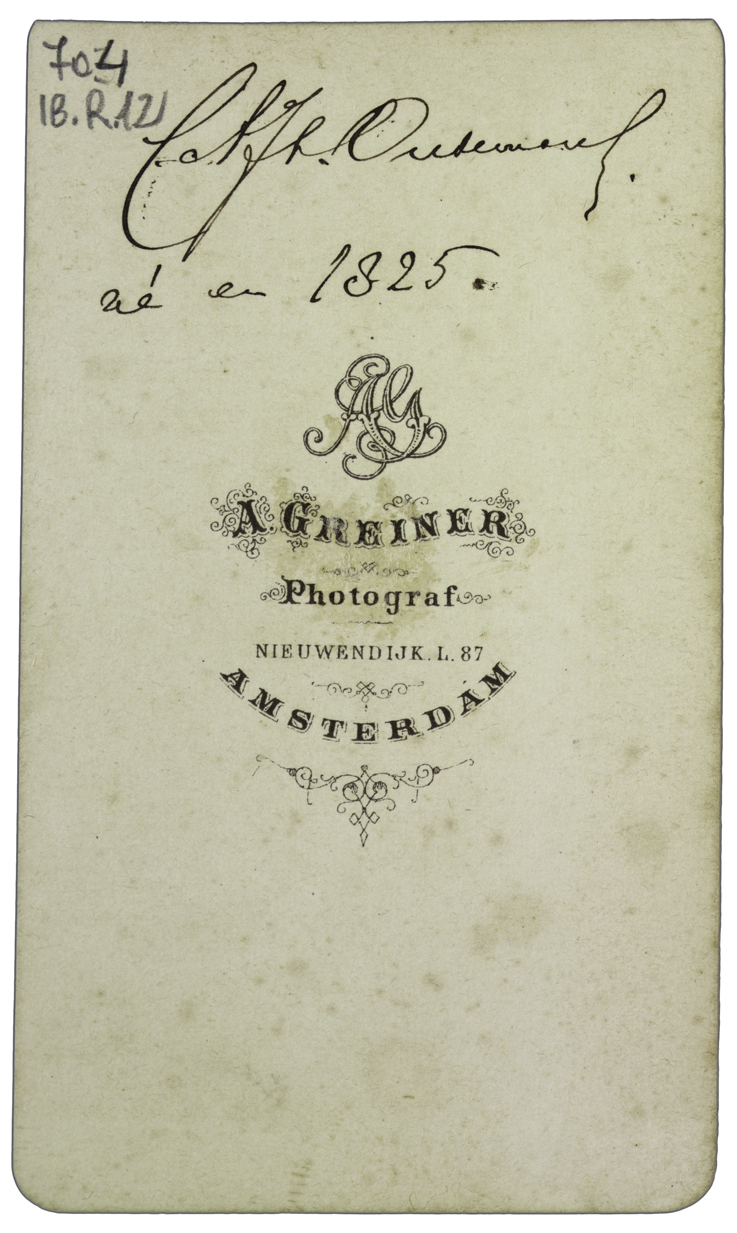 704
IB.R.121
C.A.J.A. Oudemans.
né en 1825.
AG
A. GREINER
Photograf
NIEUWENDIJK. L. 87
AMSTERDAM